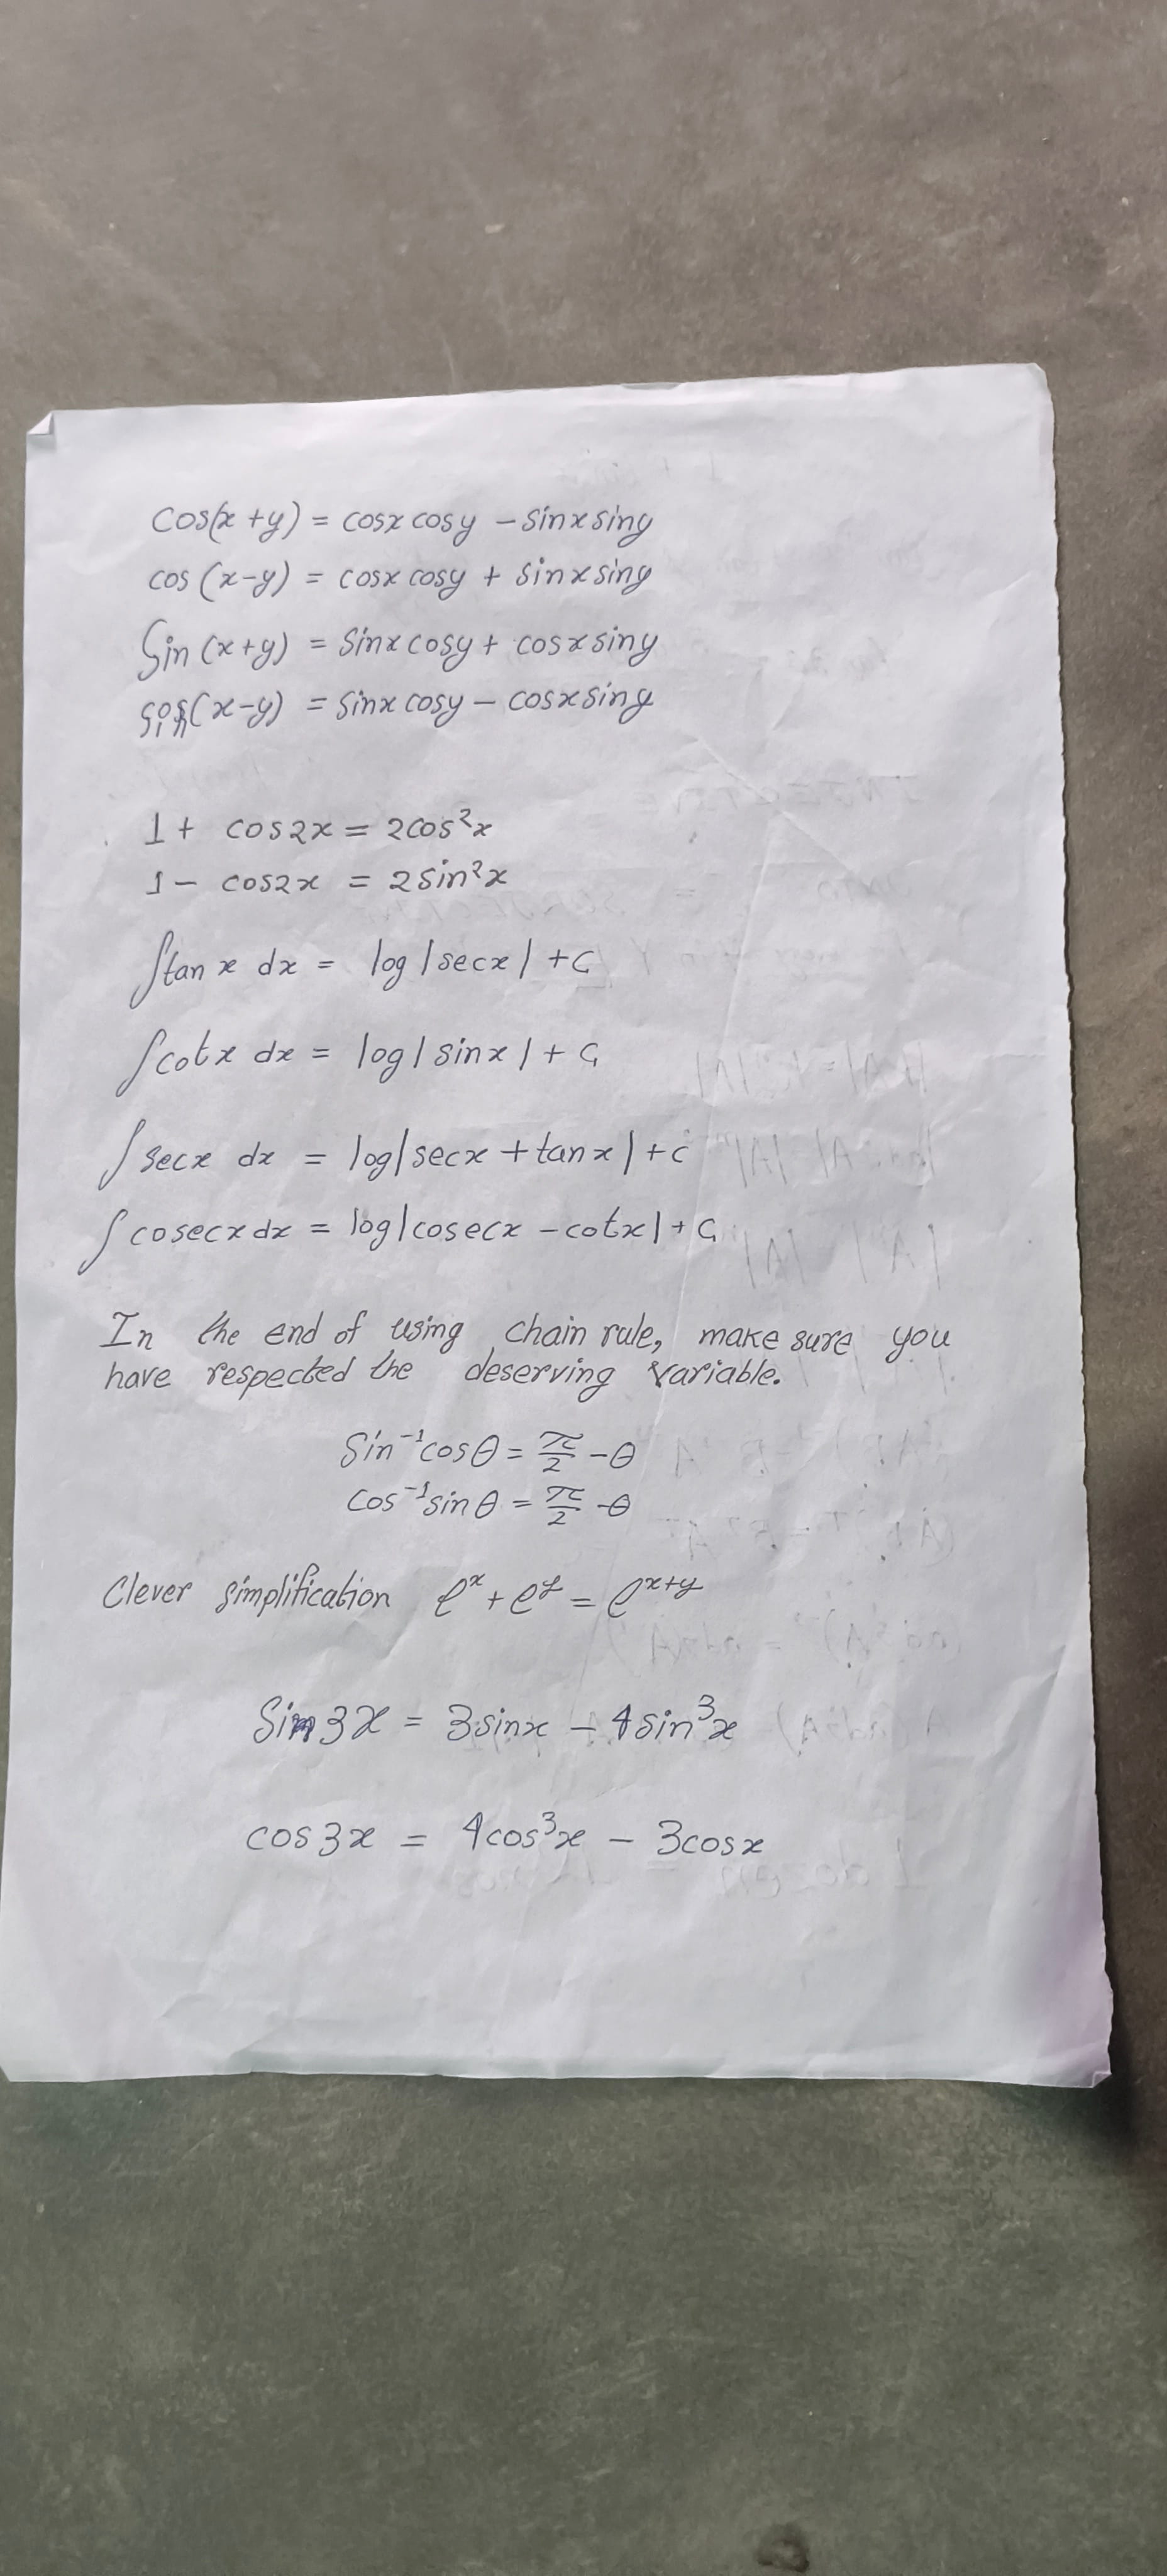 cos(x+y) = cosx cosy - sinx siny
cos (x-y) = cosx cosy + sinx siny
Sin (x+y) = sinx cosy + cosx siny
sin(x-y) = sinx cosy - cosx siny
1 + cos2x = 2cos²x
1 - cos2x = 2sin²x
∫tan x dx = log |secx| + C
∫cotx dx = log | sinx | + C
∫ secx dx = log|secx + tanx| + c
∫ cosecx dx = log|cosecx - cotx| + C
In the end of using chain rule, make sure you
have respected the deserving variable.
Sin⁻¹cosθ = π/2 - θ
cos⁻¹sinθ = π/2 - θ
Clever simplification eˣ + eʸ = eˣ⁺ʸ
Sin3x = 3sinx - 4sin³x
cos3x = 4cos³x - 3cosx